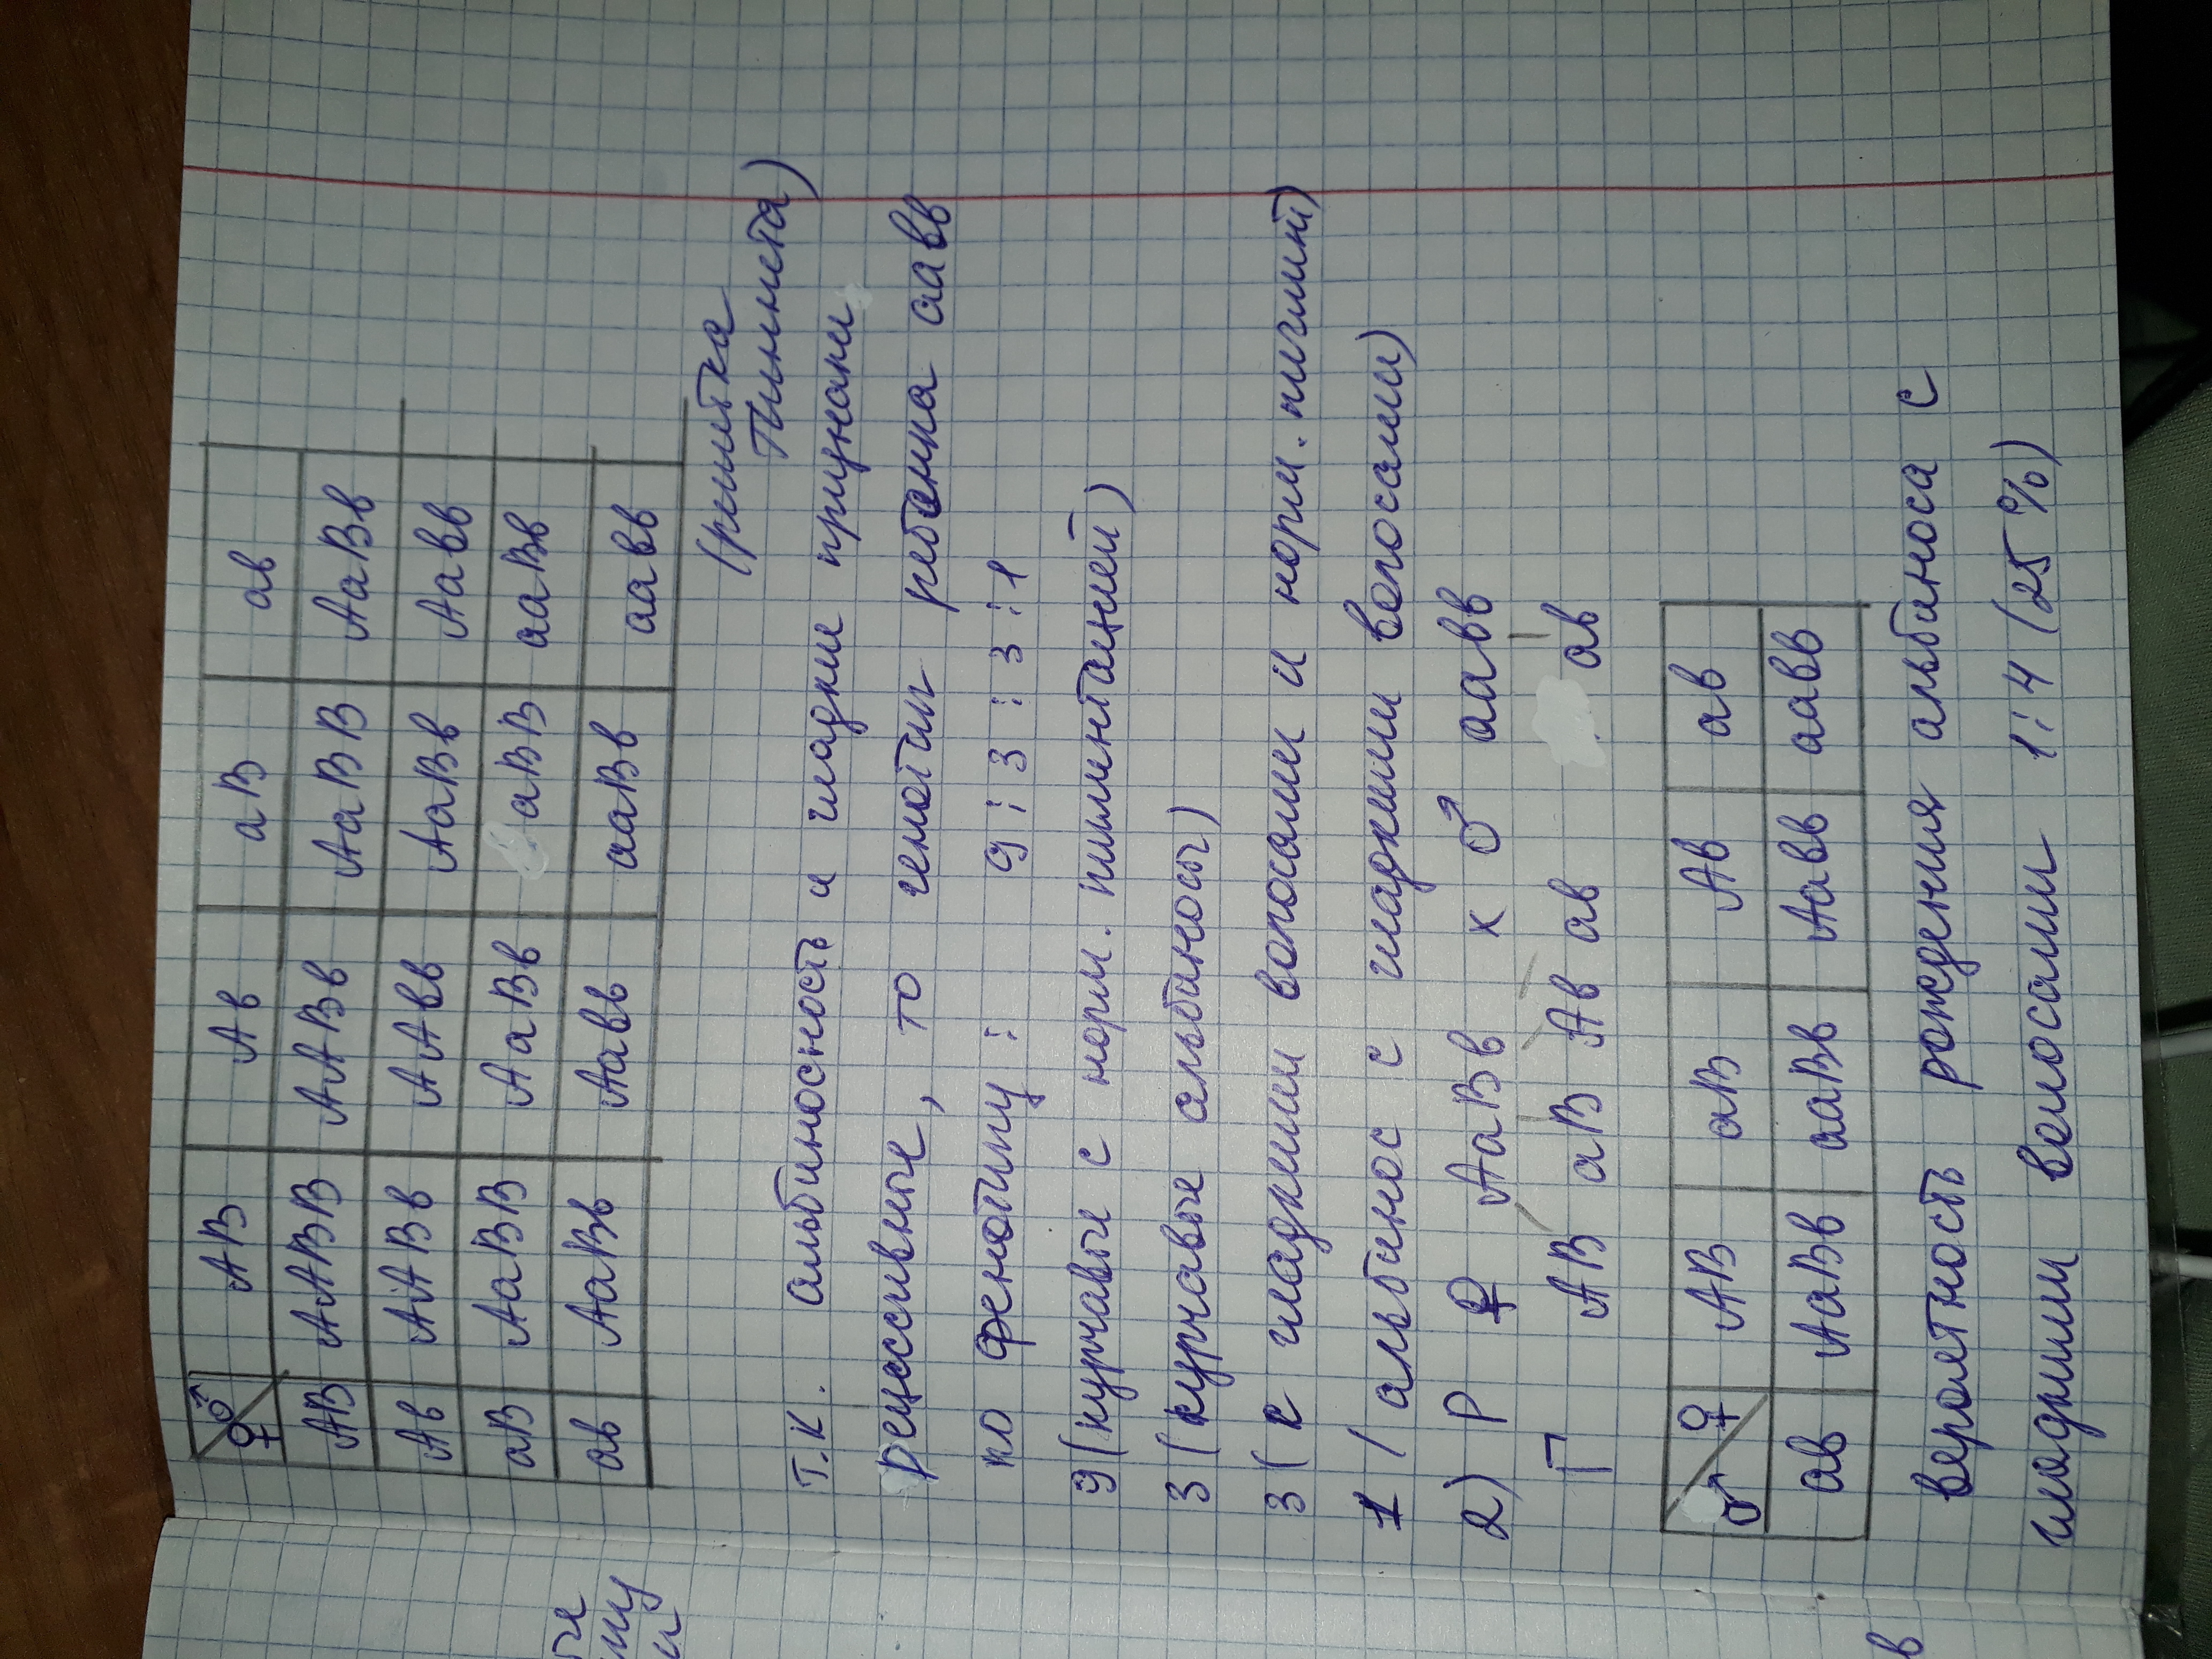 ♀ ♂ АВ Ав аВ ав
АВ ААВВ ААВв АаВВ АаВв
Ав ААВв ААвв АаВв Аавв
аВ АаВВ АаВв аВВ ааВв
ав АаВв Аавв ааВв аавв
(решетка
Пиннета)
т.к. альбиносность и гладкие признаки
рецессивные, то генотип ребенка аавв
по фенотипу : 9 : 3 : 3 : 1
9 (курчавые с норм. пигментацией)
3 (курчавые альбиносы)
3 (с гладкими волосами и норм. пигмент)
1 ( альбинос с гладкими волосами)
2) Р ♀ АаВв х ♂ аавв
Г АВ аВ Ав ав ав
♂ ♀ АВ аВ Ав ав
ав АаВв ааВв Аавв аавв
вероятность рождения альбиноса с
гладкими волосами 1:4 (25%)
в